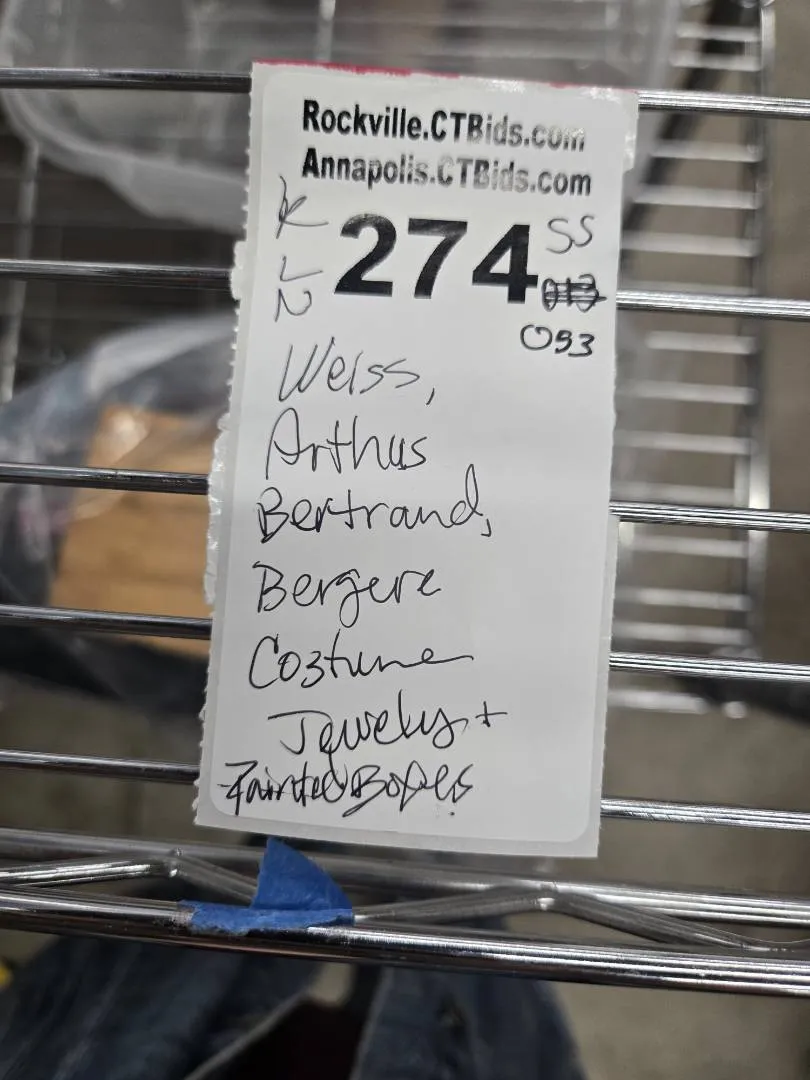 Rockville.CTBids.com
Annapolis.CTBids.com
K
L
N
274
SS
053
Weiss,
Arthus
Bertrand,
Bergere
Costume
Jewelry +
Painted Boxes